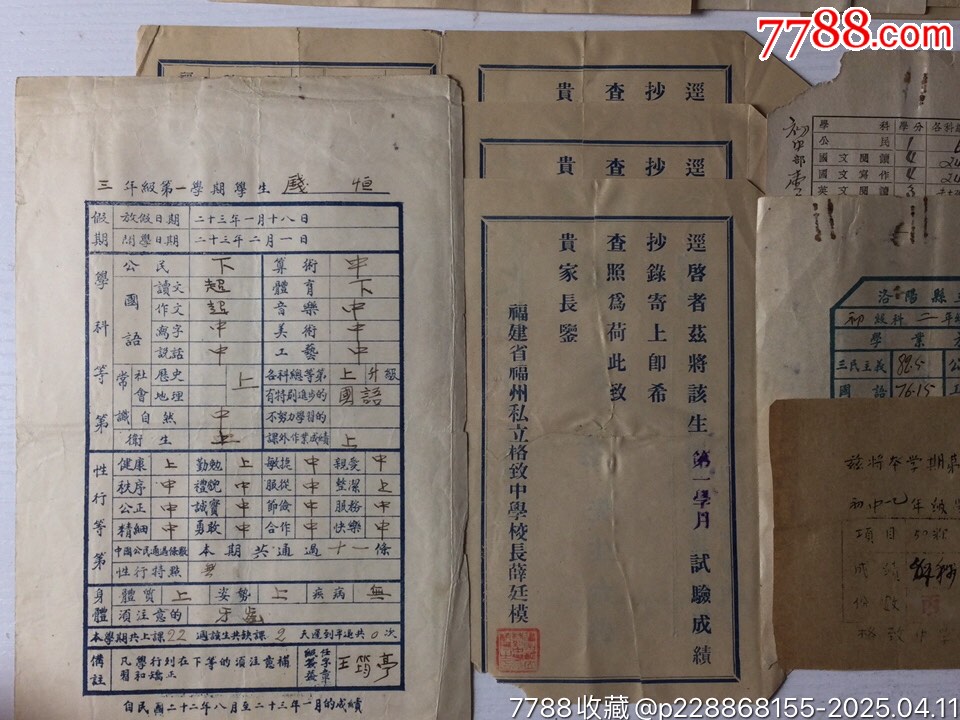 7788.com
三年級第一學期學生 錢 恒
假期 放假日期 二十三年一月十八日
開學日期 二十三年二月一日
學科等第
公民 下 算術 中
國語 讀文 超 體育 下
作文 超 音樂 中
寫字 中 美術 中
說話 中 工藝 中
常識 社會 歷史 地理 上 各科總等第 上 升級
有特別進步的 國語
自然 中 不努力學習的
衛生 上 課外作業成績 上
性行等第
健康 上 勤勉 上 敏捷 中 親愛 中
秩序 中 禮貌 中 服從 中 整潔 上
公正 中 誠實 中 節儉 中 服務 中
精細 中 勇敢 中 合作 中 快樂 中
本期共通過十一條
性行特點
身體 體質 上 姿勢 上 疾病 無
須注意的 牙
本學期共上課22週該生共缺課2天遲到早退共0次
備註 凡學行列在下等的須注意補習和矯正
王筠亭
自民國二十二年八月至二十三年一月的成績
逕 抄 查 貴
逕 抄 查 貴
逕啓者茲將該生 第一學月 試驗成績
抄錄寄上卽希
查照為荷此致
貴家長鑒
福建省福州私立格致中學校長薛廷模
初中部
學科 學分 各科
公民 1
國文閱讀 4
國文寫作 4
英文閱讀
洛陽縣立
初級科二年級
學業
三民主義 88.5
國語 76.15
茲將本學期
初中 年級
項目
成績
份數
格致
7788收藏@p228868155-2025.04.11